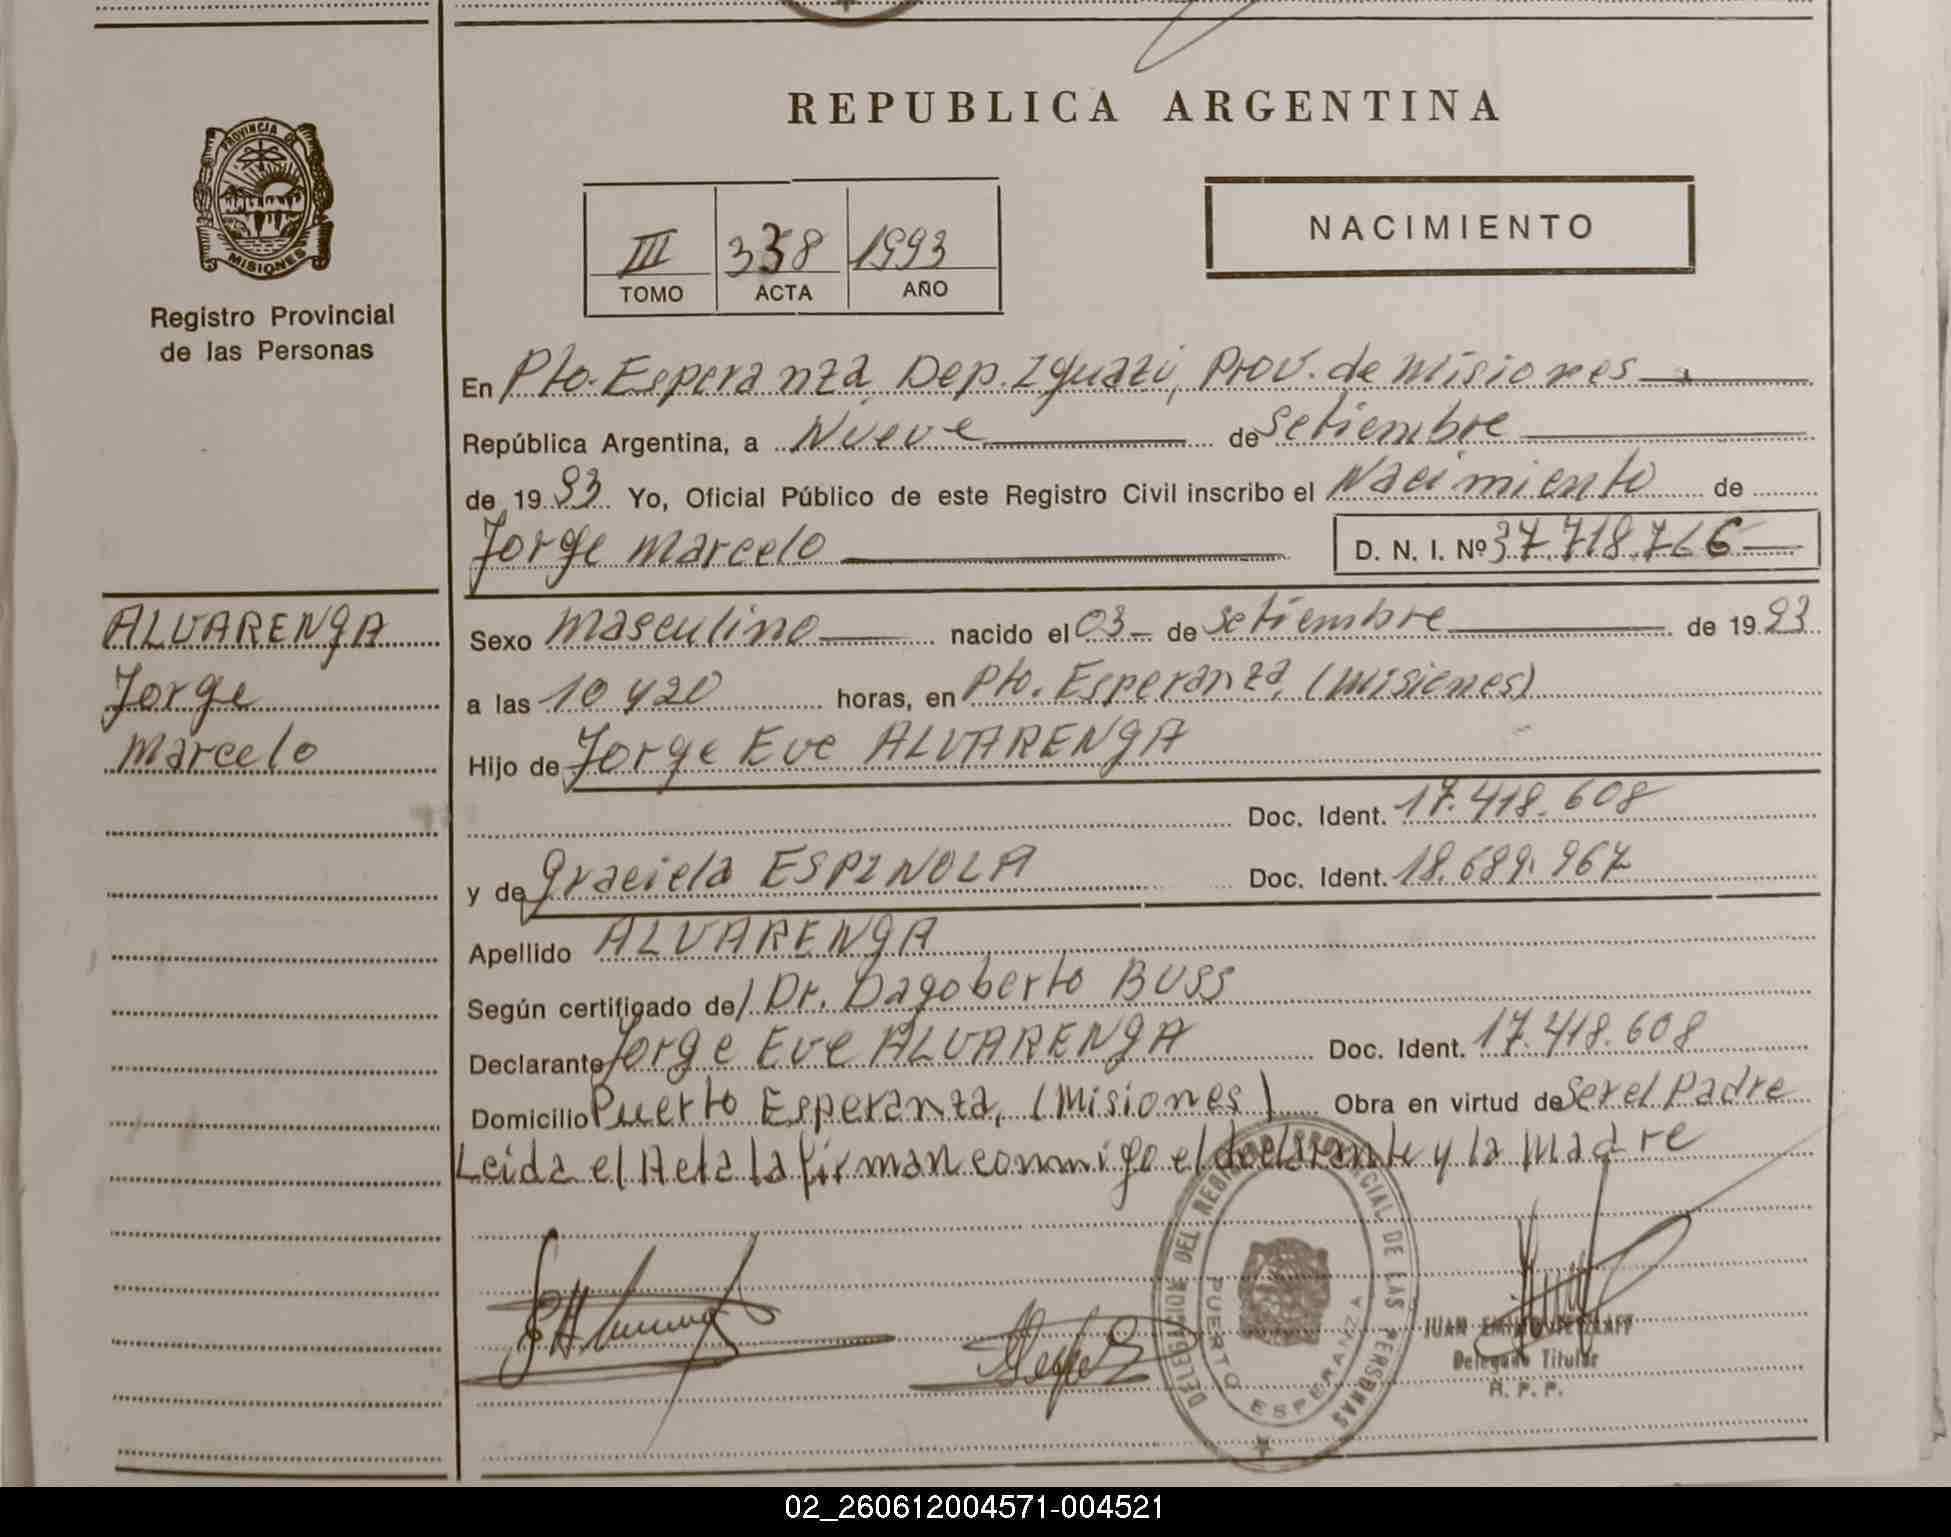 REPUBLICA ARGENTINA
PROVINCIA DE
MISIONES
Registro Provincial
de las Personas
III 338 1993
TOMO ACTA AÑO
NACIMIENTO
En Pto. Esperanza, Dep. Iguazú, Prov. de Misiones
República Argentina, a Nueve de Setiembre
de 1993 Yo, Oficial Público de este Registro Civil inscribo el Nacimiento de
Jorge Marcelo D. N. I. Nº 37.718.766
ALVARENGA
Jorge
Marcelo
Sexo Masculino nacido el 03 de Setiembre de 1993
a las 10 y 20 horas, en Pto. Esperanza, (Misiones)
Hijo de Jorge Eve ALVARENGA
Doc. Ident. 17.418.608
y de Graciela ESPINOLA Doc. Ident. 18.689.967
Apellido ALVARENGA
Según certificado de/ Dr. Dagoberto BUSS
Declarante Jorge Eve ALVARENGA Doc. Ident. 17.418.608
Domicilio Puerto Esperanza, (Misiones) Obra en virtud de Ser el Padre
Leida el Acta la firman conmigo el declarante y la Madre
DELEGACION DEL REGISTRO PROVINCIAL DE LAS PERSONAS
PUERTO ESPERANZA
JUAN
Delegado Titular
R. P. P.
02_260612004571-004521